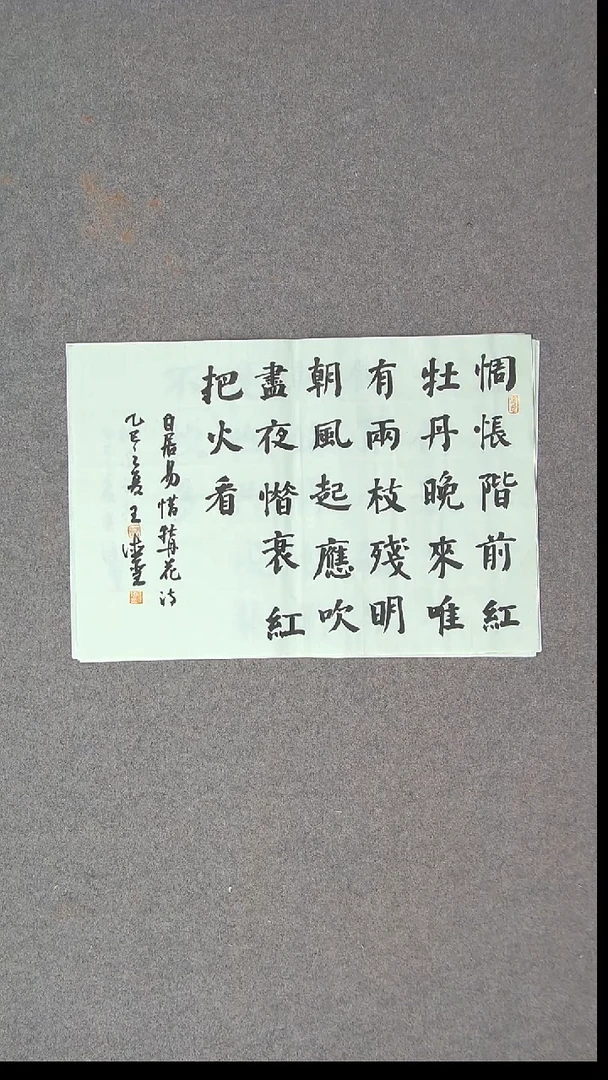 惆悵階前紅
牡丹晚來唯
有兩枝殘明
朝風起應吹
盡夜惜衰紅
把火看
白居易惜牡丹花詩
乙巳之夏王